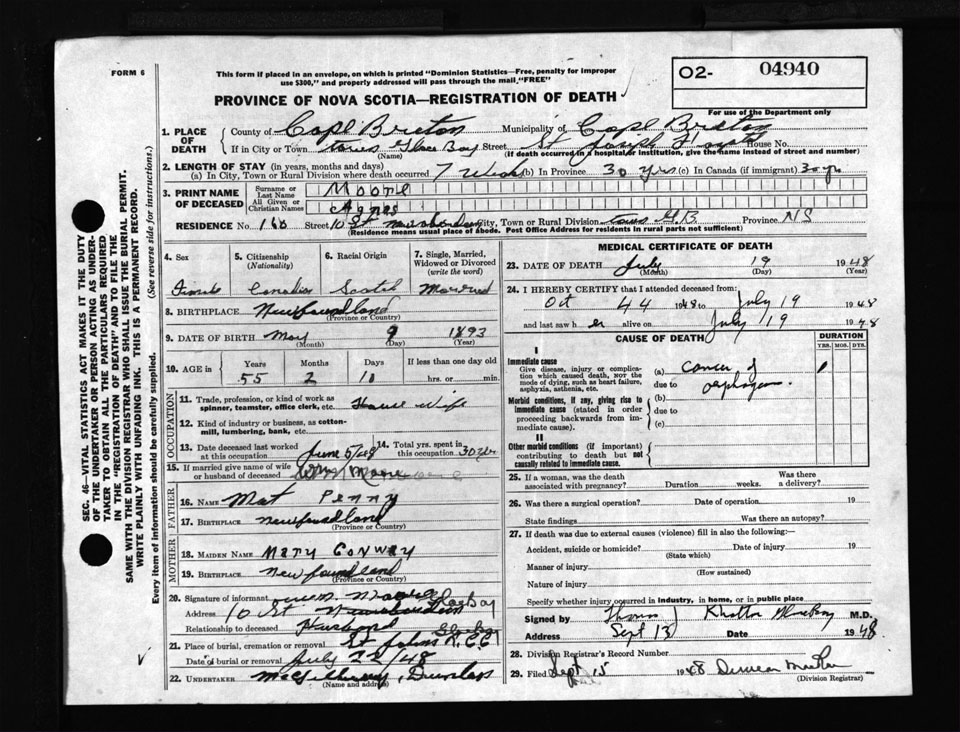 FORM 6
This form if placed in an envelope, on which is printed "Dominion Statistics—Free, penalty for improper
use $300," and properly addressed will pass through the mail, "FREE"
PROVINCE OF NOVA SCOTIA—REGISTRATION OF DEATH
O2- 04940
For use of the Department only
1. PLACE OF DEATH County of Cape Breton Municipality of Cape Breton
If in City or Town Glace Bay Street St Joseph House No.
(Name) (If death occurred in a hospital or institution, give the name instead of street and number)
2. LENGTH OF STAY (in years, months and days)
(a) In City, Town or Rural Division where death occurred 7 (b) In Province 30 yrs (c) In Canada (if immigrant) 30 yr
3. PRINT NAME OF DECEASED Surname or Last Name Moore
All Given or Christian Names Agnes
RESIDENCE No. 160 Street 10 St City, Town or Rural Division G.B Province NS
(Residence means usual place of abode. Post Office Address for residents in rural parts not sufficient)
4. Sex 5. Citizenship (Nationality) 6. Racial Origin 7. Single, Married, Widowed or Divorced (write the word)
Female Canadian Scotch Married
8. BIRTHPLACE Newfoundland
(Province or Country)
9. DATE OF BIRTH May 9 1893
(Month) (Day) (Year)
10. AGE in Years Months Days If less than one day old
55 2 10 hrs. or min.
OCCUPATION
11. Trade, profession, or kind of work as spinner, teamster, office clerk, etc. House Wife
12. Kind of industry or business, as cotton-mill, lumbering, bank, etc.
13. Date deceased last worked at this occupation June 5/48 14. Total yrs. spent in this occupation 30 yrs
15. If married give name of wife or husband of deceased Wm Moore
FATHER
16. NAME Mat Penny
17. BIRTHPLACE Newfoundland
(Province or Country)
MOTHER
18. MAIDEN NAME Mary Conway
19. BIRTHPLACE Newfoundland
(Province or Country)
20. Signature of informant Moore
Address 10 St Glace Bay
Relationship to deceased Husband
21. Place of burial, cremation or removal St Johns
Date of burial or removal July 22/48
22. UNDERTAKER Dunlap
(Name and address)
MEDICAL CERTIFICATE OF DEATH
23. DATE OF DEATH July 19 1948
(Month) (Day) (Year)
24. I HEREBY CERTIFY that I attended deceased from:
Oct 44 1948 to July 19 1948
and last saw h er alive on July 19 1948
CAUSE OF DEATH DURATION
YRS. MOS. DYS.
I
Immediate cause
Give disease, injury or complication which caused death, NOT the mode of dying, such as heart failure, asphyxia, asthenia, etc.
(a) Cancer of
due to
Morbid conditions, if any, giving rise to immediate cause (stated in order proceeding backwards from immediate cause).
(b)
due to
(c)
II
Other morbid conditions (if important) contributing to death but not causally related to immediate cause.
25. If a woman, was the death associated with pregnancy? Duration weeks. Was there a delivery?
26. Was there a surgical operation? Date of operation 19
State findings Was there an autopsy?
27. If death was due to external causes (violence) fill in also the following:
Accident, suicide or homicide? Date of injury 19
(State which)
Manner of injury
(How sustained)
Nature of injury
Specify whether injury occurred in industry, in home, or in public place
Signed by M.D.
Address Sept 13 Date 1948
28. Division Registrar's Record Number
29. Filed Sept 15 1948 Duncan
(Division Registrar)
SEC. 46—VITAL STATISTICS ACT MAKES IT THE DUTY
OF THE UNDERTAKER OR PERSON ACTING AS UNDER-
TAKER TO OBTAIN ALL THE PARTICULARS REQUIRED
IN THE "REGISTRATION OF DEATH" AND TO FILE THE
SAME WITH THE DIVISION REGISTRAR WHO SHALL ISSUE THE BURIAL PERMIT.
WRITE PLAINLY WITH UNFADING INK. THIS IS A PERMANENT RECORD.
Every item of information should be carefully supplied. (See reverse side for instructions.)